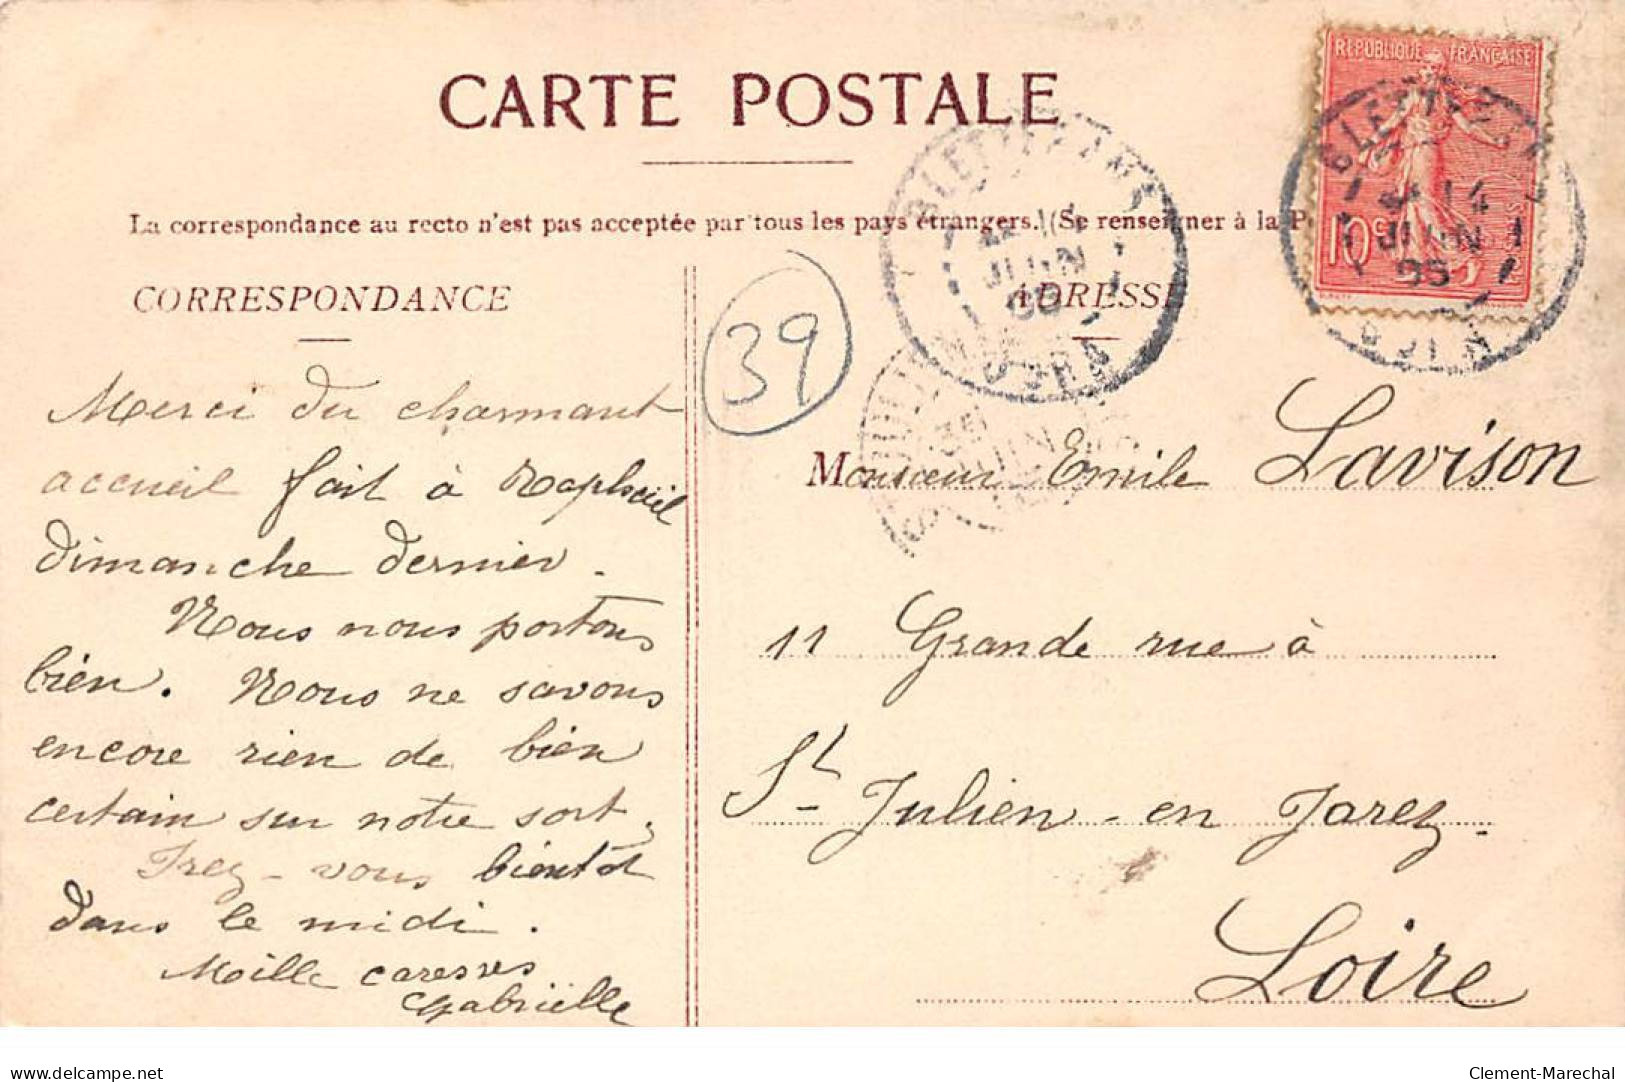 CARTE POSTALE
La correspondance au recto n'est pas acceptée par tous les pays étrangers. (Se renseigner à la P
CORRESPONDANCE
Merci du charmant
accueil fait à Raphaël
dimanche dernier.
Nous nous portons
bien. Nous ne savons
encore rien de bien
certain sur notre sort.
Irez-vous bientôt
dans le midi.
Mille caresses
Gabrielle
39
ADRESSE
Monsieur Emile Lavison
11 Grande rue à
St Julien-en Jarez-
Loire
RÉPUBLIQUE FRANÇAISE
10c
14
JUIN
05
JUIN
JURA
delcampe.net
Clement-Marechal